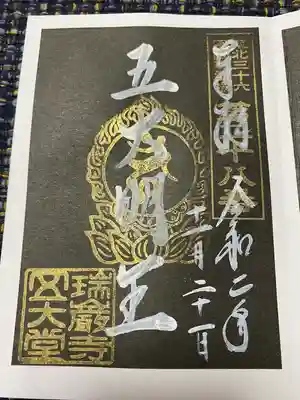 東北三十六
十八番
奉拝
令和二年
十一月二十一日
五大明王
瑞巌寺
五大堂